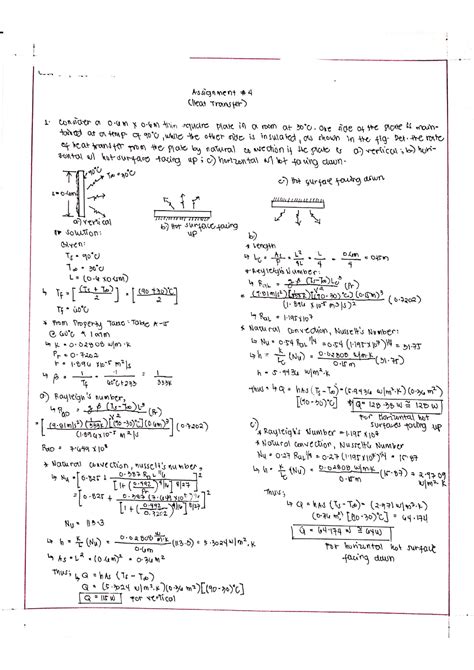 Assignment #4
(Heat Transfer)
1. Consider a 0.6m x 0.6m thin square plate in a room at 30°C. One side of the plate is main-
tained at a temp of 90°C, while the other side is insulated, as shown in the fig. Det. the rate
of heat transfer from the plate by natural convection if the plate is a) vertical; b) hori-
zontal w/ hot surface facing up; c) horizontal w/ hot facing down.
90°C
T∞ = 30°C
L = 0.6m
a) vertical
b) Hot surface facing
up
c) Hot surface facing down
Solution:
Given:
Ts = 90°C
T∞ = 30°C
L = (0.6 x 0.6m)
↳ Tf = [(Ts + T∞)/2] = [(90+30)°C/2]
* From Property Table: Table A-15
@ 60°C & 1 atm
↳ k = 0.02808 W/m·K
Pr = 0.7202
v = 1.896 x10⁻⁵ m²/s
↳ β = 1/Tf = 1/(60°C+273) = 1/333K
a) Rayleigh's number,
↳ RaD = gβ(Ts-T∞)L³/v² (Pr)
= (9.81m/s²)[1/333K](90-30°C)(0.6m)³/(1.896x10⁻⁵ m²/s)² (0.7202)
RaD = 7.649 x10⁸
* Natural convection, nusselt's number,
↳ Nu = [0.825 + 0.387 Ra^1/6/[1+(0.492/Pr)^9/16]^8/27]²
= [0.825 + 0.387 (7.649x10⁸)^1/6/[1+(0.492/0.7202)^9/16]^8/27]²
Nu = 113.3
↳ h = k/L (Nu) = 0.02808 W/m·K/0.6m (113.3) = 5.3024 W/m²·K
↳ As = L² = (0.6m)² = 0.36m²
Thus; ↳ Q = hAs (Ts - T∞)
Q = (5.3024 W/m²·K)(0.36m²)[(90-30)°C]
Q = 115W for vertical
b)
* Length
↳ Lc = As/P = L²/4L = L/4 = 0.6m/4 = 0.15m
* Rayleigh's Number:
↳ RaL = gβ(Ts-T∞)L³/v² (Pr)
= (9.81m/s²)[1/333K](90-30°C)(0.15m)³/(1.896 x10⁻⁵ m²/s)² (0.7202)
↳ RaL = 1.195x10⁷
* Natural Convection, Nusselt's Number:
↳ Nu = 0.54 RaL^1/4 = 0.54 (1.195x10⁷)^1/4 = 31.75
↳ h = k/Lc (Nu) = 0.02808 W/m·K/0.15m (31.75)
h = 5.9436 W/m²·K
Thus = ↳ Q = hAs (Ts-T∞) = (5.9436 W/m²·K)(0.36m²)
[(90-30)°C]
Q = 128.38W ≅ 128W
for horizontal hot
surfaces facing up
c)
* Rayleigh's Number = 1.195 x10⁷
* Natural convection, Nusselt's Number
↳ Nu = 0.27 RaL^1/4 = 0.27 (1.195x10⁷)^1/4 = 15.87
↳ h = k/Lc (Nu) = 0.02808 W/m·K/0.15m (15.87) = 2.9709
W/m²·K
Thus;
↳ Q = hAs (Ts - T∞) = (2.971 W/m²·K)
(0.36m²)[(90-30)°C] = 64.174
Q = 64.174W ≅ 64W
For horizontal hot surface
facing down